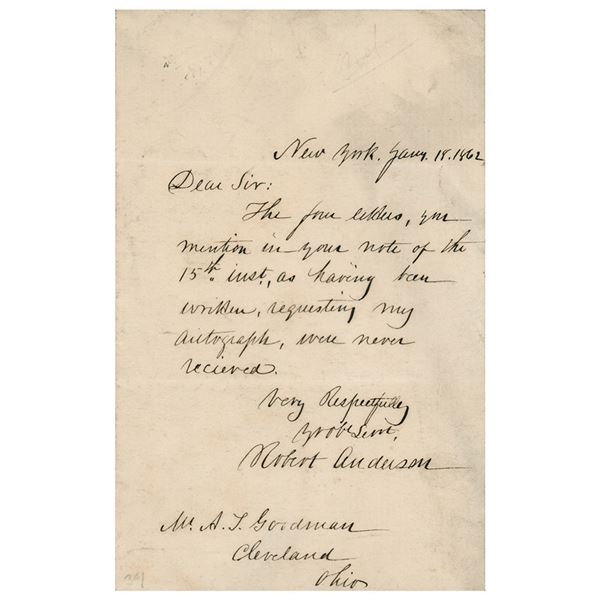 New York. Jany. 18. 1862
Dear Sir:
The four letters, you
mention in your note of the
15th inst., as having been
written, requesting my
autograph, were never
recieved.
Very Respectfully
Yr Obt Servt,
Robert Anderson
Mr. A. T. Goodman
Cleveland
Ohio